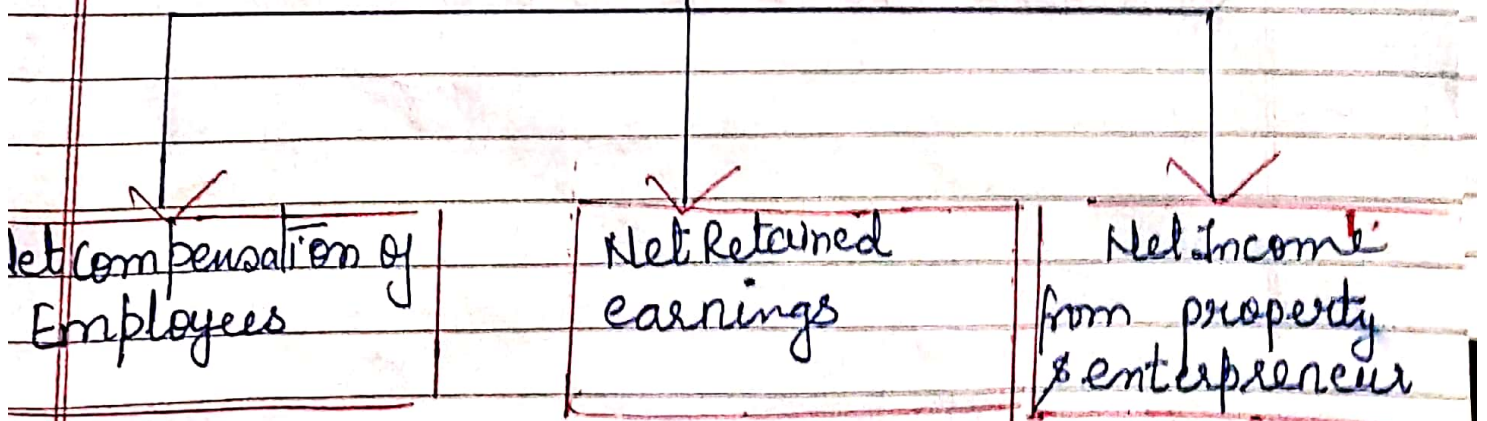 Net Compensation of
Employees
Net Retained
earnings
Net Income
from property
& enterpreneur